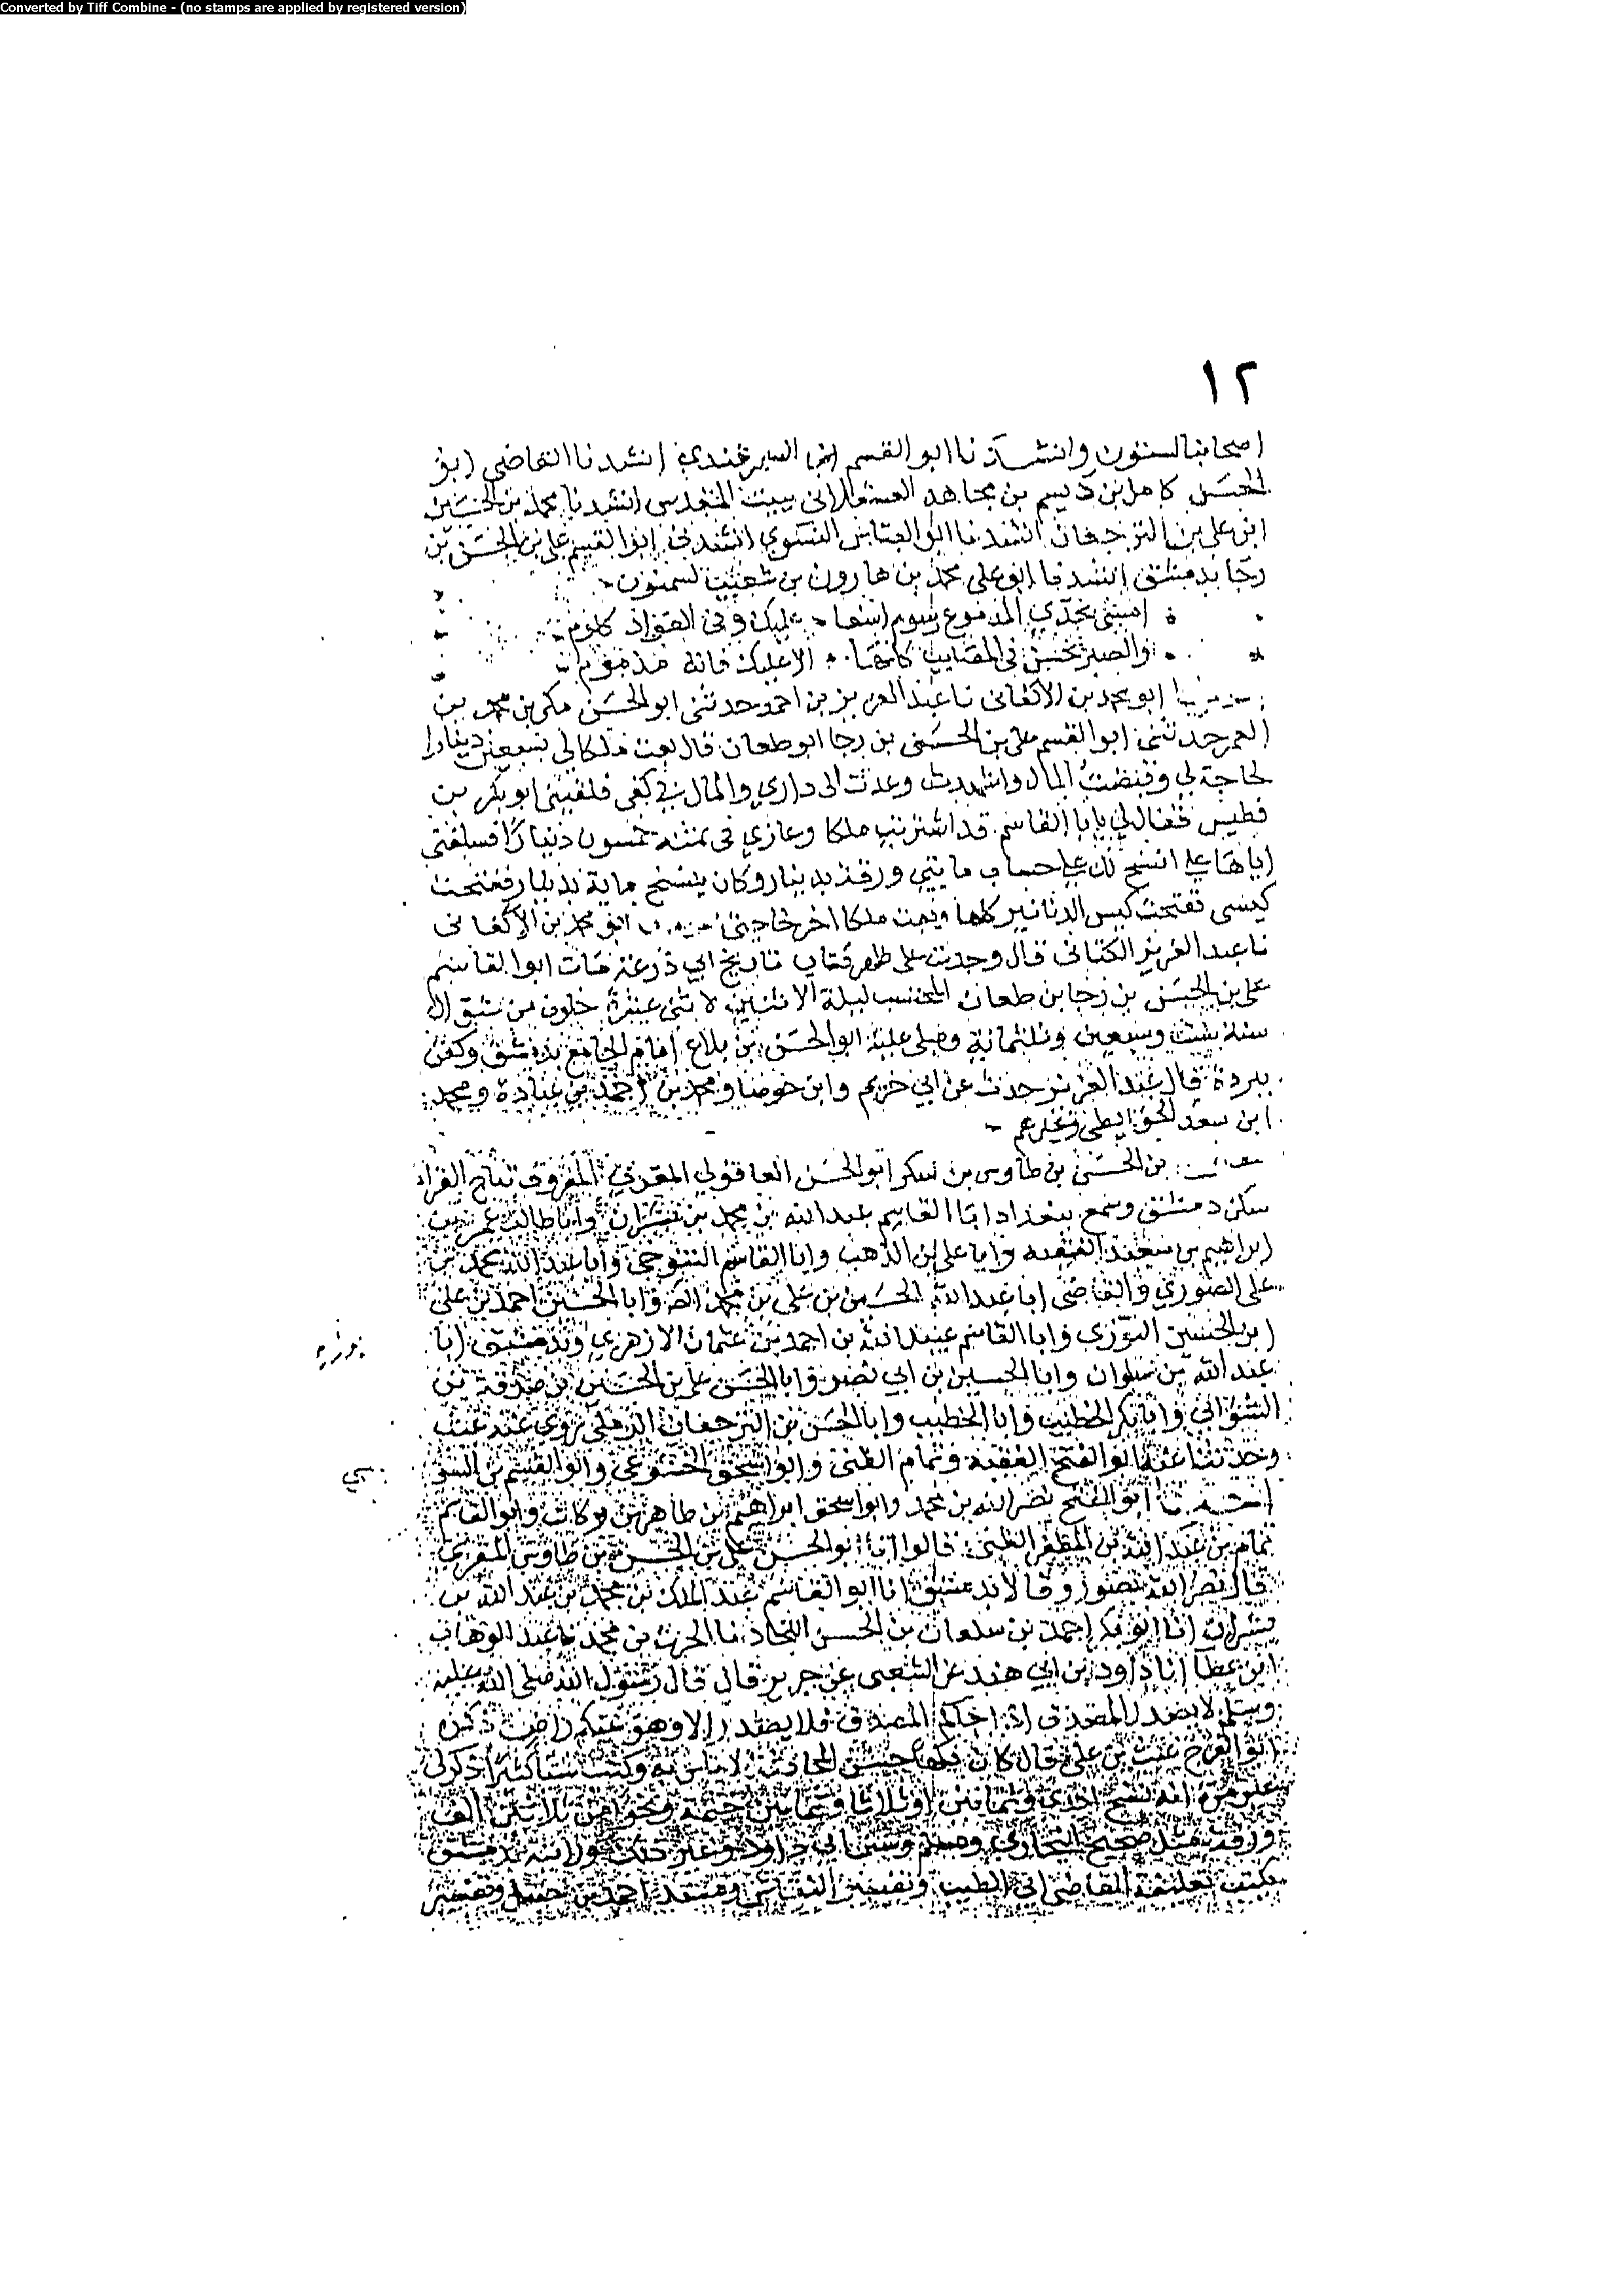 Converted by Tiff Combine - (no stamps are applied by registered version)
١٢
اصحابنا لسمنون وانشدنا ابو القسم ابن السمرقندي انشدنا القاضي ابو
الحسن كامل بن ديسم بن مجاهد العسقلاني ببيت المقدس انشدنا محمد بن الحسين
ابن علي بن الترجمان انشدنا ابو العباس النسوي انشدني ابو القسم علي بن الحسن بن
رجا بدمشق انشدنا ابو علي محمد بن هارون بن شعيب لسمنون
امسى بخدي الدموع رسوم اسفا عليك وفي الفواد كلوم
والصبر يحسن في المصايب كلها الا عليك فانه مذموم
ابو محمد بن الاكفاني نا عبد العزيز بن احمد حدثني ابو الحسن مكي بن محمد بن
الغمر حدثني ابو القسم علي بن الحسن بن رجا ابو طعان قال بعت ملكا لي بسبعين دينارا
لحاجة لي وقبضت المال واشهدت وعدت الى داري والمال في كفي فلقيني ابو بكر بن
فطيس فقال لي يابا القاسم قد اشتريت ملكا وعازني في ثمنه خمسون دينارا فسلفني
اياها على انسخ لك على حساب مايتي ورقة بدينار وكان ينسخ ماية بدينار ففتحت
كيسي ففتحت كيس الدنانير كلها وبعت ملكا اخر لحاجتي ابو محمد بن الاكفاني
نا عبد العزيز الكتاني قال وجدت على ظهر كتاب تاريخ ابي زرعة مات ابو القاسم
علي بن الحسن بن رجا بن طعان المحتسب ليلة الاثنين لاثنى عشرة خلون من شوال
سنة ست وسبعين وثلثماية وصلى عليه ابو الحسن بن بلاغ امام الجامع بدمشق وكفن
ببردة قال عبد العزيز حدث عن ابي خريم وابن جوصا ومحمد بن احمد بن عبادة ومحمد
ابن سعد وغيرهم
بن الحسن بن طاوس بن سكر ابو الحسن العاقولي المقرئ المعروف بتاج القراء
سكن دمشق وسمع ببغداد ابا القاسم عبد الله بن محمد بن بشران وابا طالب عمر بن
ابراهيم بن سعيد الفقيه وابا علي بن المذهب وابا القاسم التنوخي وابا عبد الله محمد بن
علي الصوري والقاضي ابا عبد الله الحسين بن علي بن محمد وابا الحسين احمد بن علي
ابن الحسين التوزي وابا القاسم عبيد الله بن احمد بن عثمان الازهري وبدمشق ابا
عبد الله بن سلوان وابا الحسين بن ابي نصر وابا الحسن علي بن الحسين بن صدقة بن
الشرابي وابا بكر الخطيب وابا الحسن بن الترجمان الرملي روى عنه غيث
وحدثنا عنه ابو الفتح الفقيه وتمام الظني وابو اسحق الخشوعي وابو القسم بن السو
سي
ابو الفتح نصر الله بن محمد وابو اسحق ابراهيم بن طاهر بن بركات وابو القاسم
تمام بن عبد الله بن المظفر الظني قالوا انا ابو الحسن علي بن الحسن بن طاوس المقرئ
قال نصر الله بصور وقالا بدمشق انا ابو القاسم عبد الملك بن محمد بن عبد الله بن
بشران انا ابو بكر احمد بن سلمان بن الحسن النجاد نا الحرث بن محمد نا عبد الوهاب
ابن عطا انا داود بن ابي هند عن الشعبي عن جرير قال قال رسول الله صلى الله عليه
وسلم لا يصدر المصدق اذا جاكم المصدق فلا يصدر الا وهو عنكم راض ذكر
ابو الفرج غيث بن علي قال كان حسن المحادثة لا باس به وكتب شيئا كثيرا ذكر لي
غير مرة انه نسخ احدى وثمانين او ثلاثا وثمانين ختمة ونحوا من ثلاثين الف
ورقة مثل صحيح البخاري ومسلم وسنن ابي داود وغير ذلك وراسه بدمشق
يكتب تعليقة القاضي ابي الطيب وتفسير النقاش ومسند احمد بن حنبل وتفسير